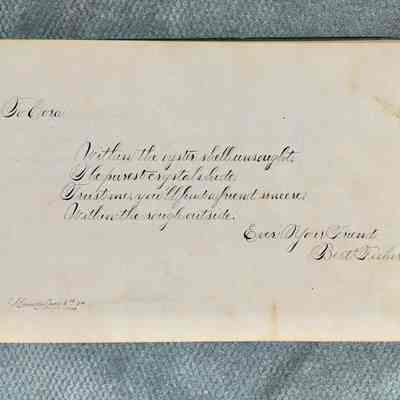 To Cora
Within the oyster shell unsought,
The purest crystals hide,
Trust me, you'll find a friend sincere,
Within the rough outside.
Ever Your Friend
Fisher